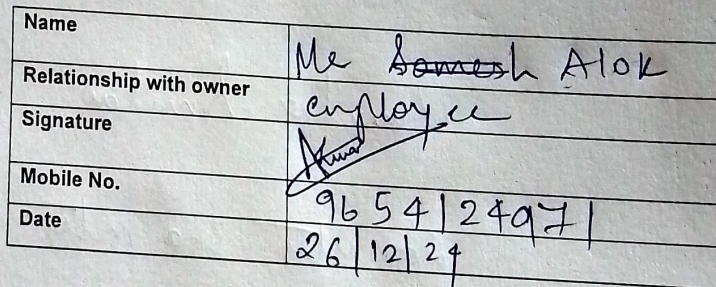 Name Me Somesh Alok
Relationship with owner employee
Signature
Mobile No. 9654124971
Date 26/12/24